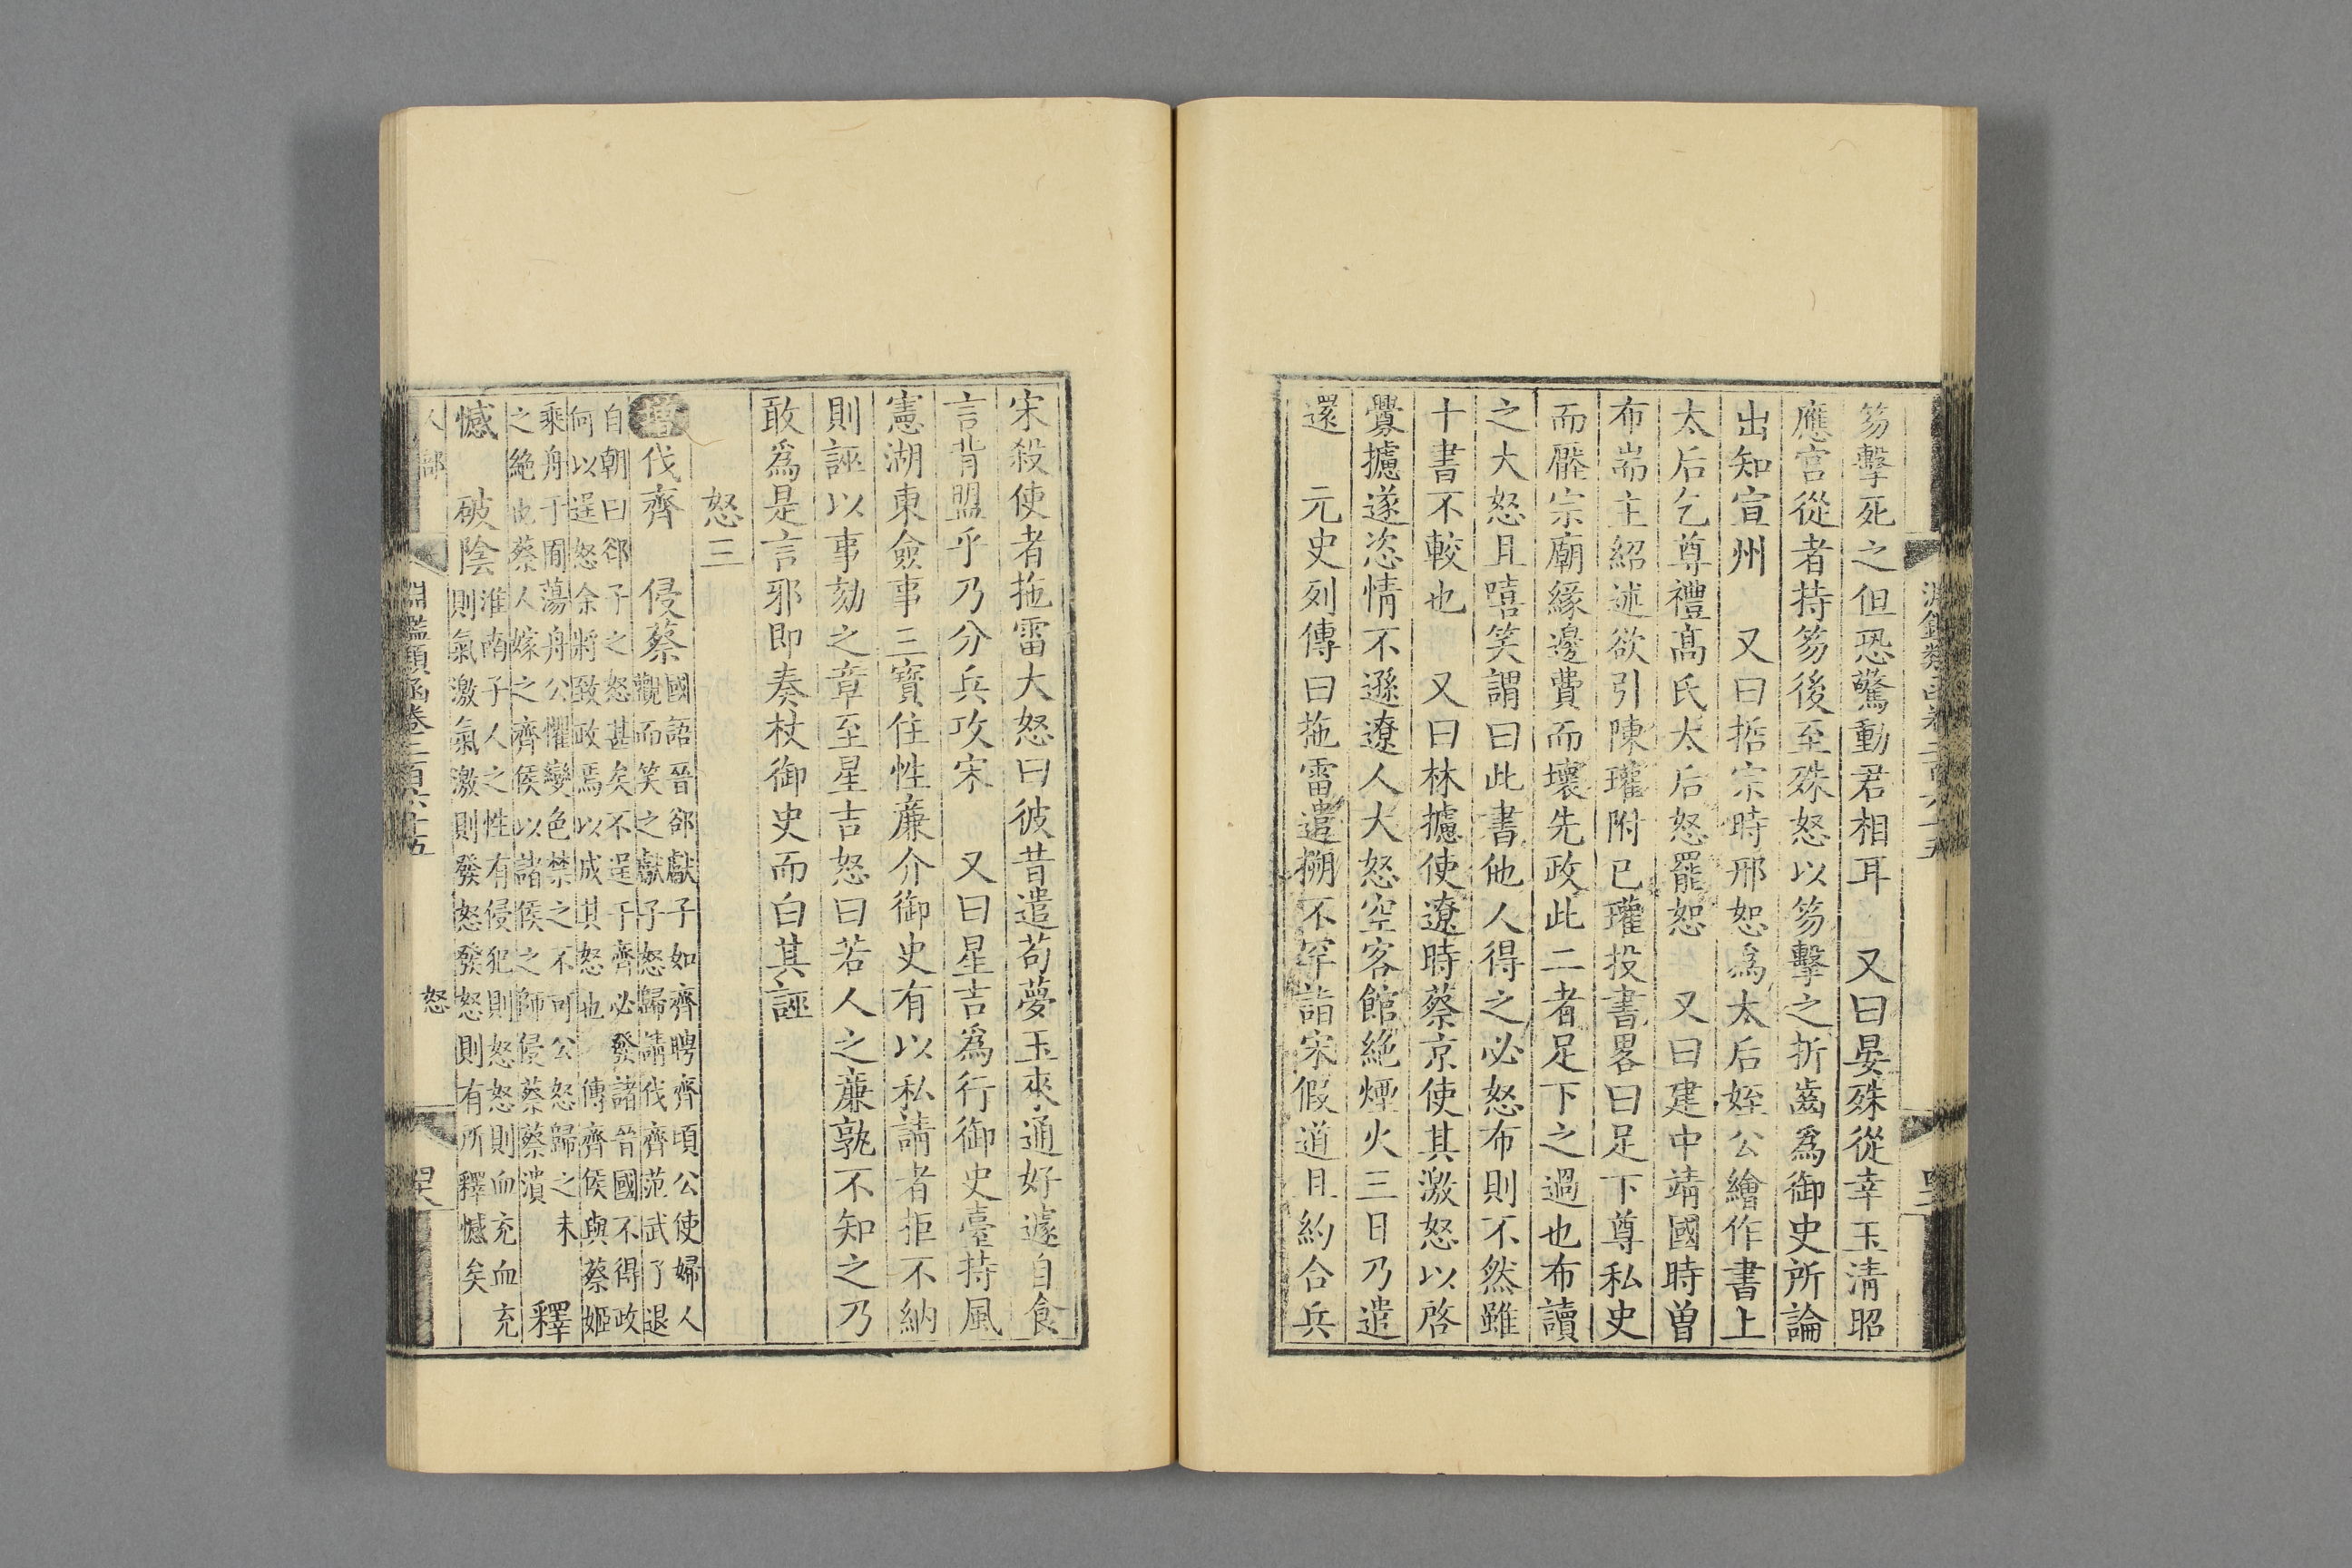 笏擊死之但恐驚動君相耳　又曰晏殊從幸玉清昭
應宫從者持笏後至殊怒以笏擊之折齒爲御史所論
出知宣州　又曰哲宗時邢恕爲太后姪公繪作書上
太后乞尊禮髙氏太后怒罷恕　又曰建中靖國時曽
布耑主紹述欲引陳瓘附已瓘投書畧曰足下尊私史
而壓宗廟緣邊費而壞先政此二者足下之過也布讀
之大怒且嘻笑謂曰此書他人得之必怒布則不然雖
十書不較也　又曰林攄使遼時蔡京使其激怒以啓
釁攄遂恣情不遜遼人大怒空客館絶煙火三日乃遣
還　元史列傳曰拖雷遣搠不罕詣宋假道且約合兵
宋殺使者拖雷大怒曰彼昔遣苟夢玉來通好遽自食
言背盟乎乃分兵攻宋　又曰星吉爲行御史臺持風
憲湖東僉事三寶住性廉介御史有以私請者拒不納
則誣以事劾之章至星吉怒曰若人之廉孰不知之乃
敢爲是言邪即奏杖御史而白其誣
怒三
增伐齊　侵蔡國語晉郤獻子如齊聘齊頃公使婦人
觀而笑之獻子怒歸請伐齊范武子退
自朝曰郤子之怒甚矣不逞于齊必發諸晉國不得政
何以逞怒余將致政焉以成其怒也　傳齊侯與蔡姬
乘舟于囿蕩舟公懼變色禁之不可公怒歸之未
之絶也蔡人嫁之齊侯以諸侯之師侵蔡蔡潰　釋
憾　破陰淮南子人之性有侵犯則怒怒則血充血充
則氣激氣激則發怒發怒則有所釋憾矣
人部
淵鑑類函卷三百六十五
怒